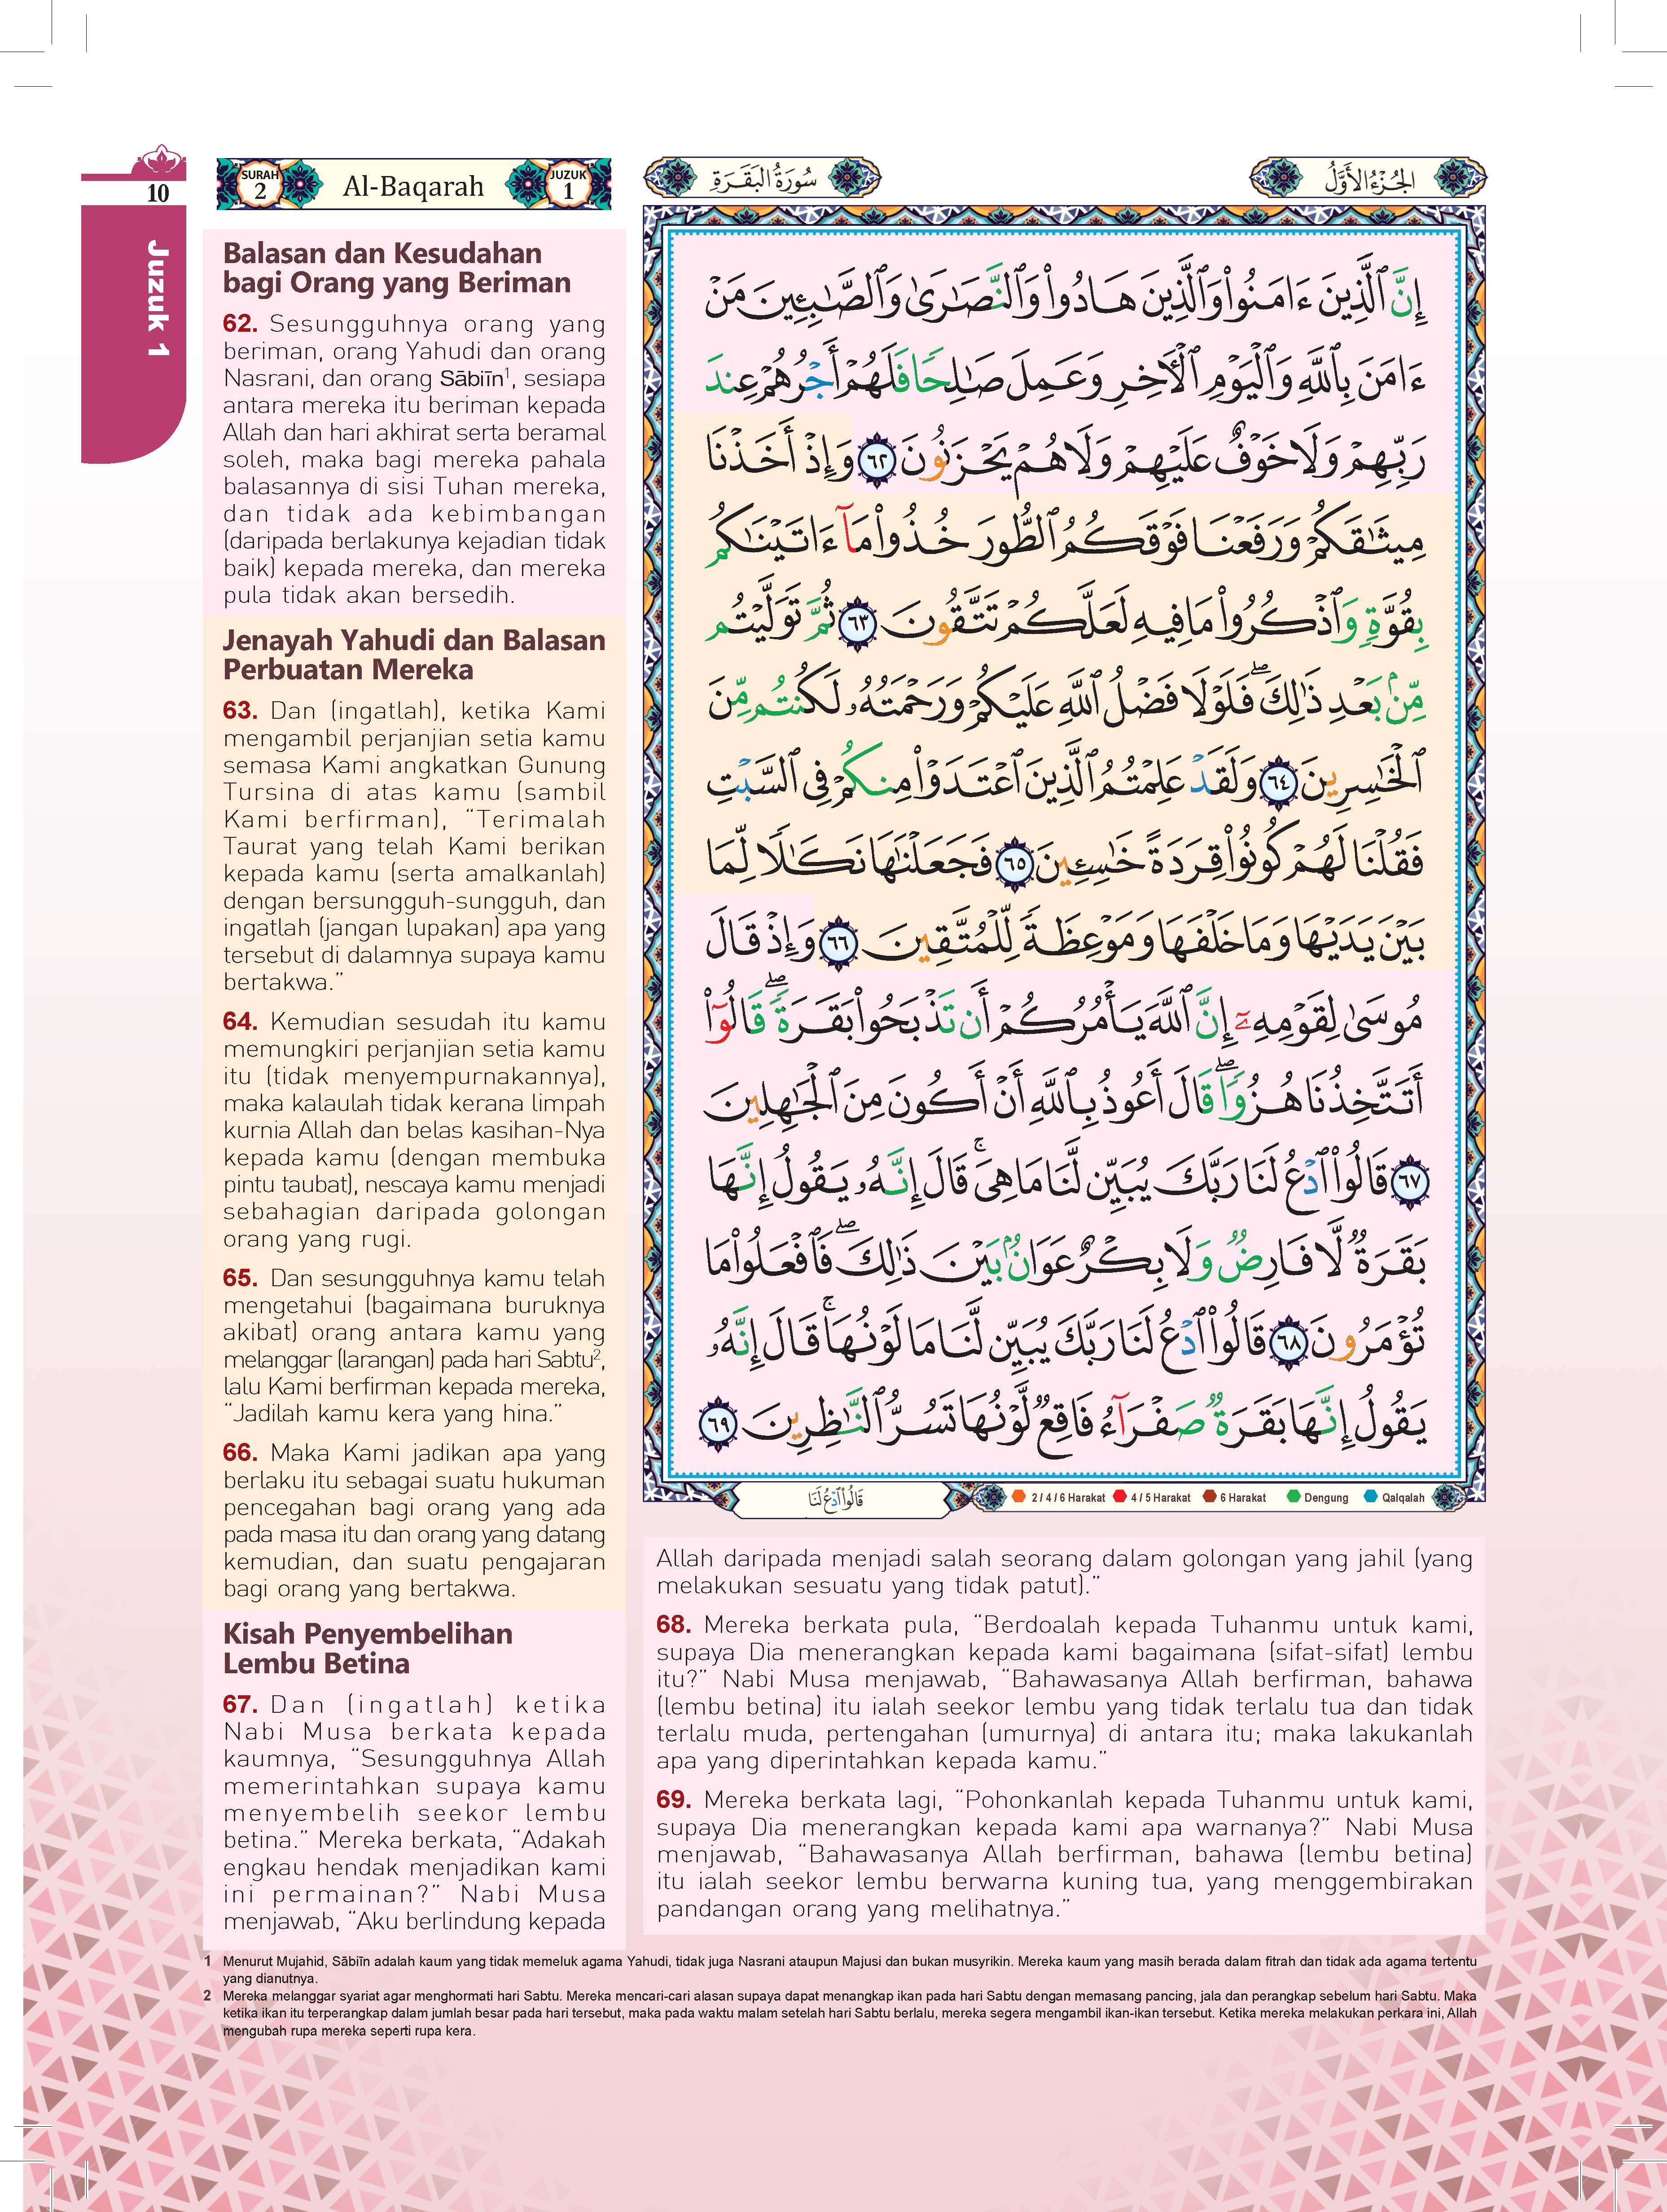 10
Juzuk 1
SURAH
2
Al-Baqarah
JUZUK
1
Balasan dan Kesudahan
bagi Orang yang Beriman
62. Sesungguhnya orang yang
beriman, orang Yahudi dan orang
Nasrani, dan orang Sābiīn¹, sesiapa
antara mereka itu beriman kepada
Allah dan hari akhirat serta beramal
soleh, maka bagi mereka pahala
balasannya di sisi Tuhan mereka,
dan tidak ada kebimbangan
(daripada berlakunya kejadian tidak
baik) kepada mereka, dan mereka
pula tidak akan bersedih.
Jenayah Yahudi dan Balasan
Perbuatan Mereka
63. Dan (ingatlah), ketika Kami
mengambil perjanjian setia kamu
semasa Kami angkatkan Gunung
Tursina di atas kamu (sambil
Kami berfirman), “Terimalah
Taurat yang telah Kami berikan
kepada kamu (serta amalkanlah)
dengan bersungguh-sungguh, dan
ingatlah (jangan lupakan) apa yang
tersebut di dalamnya supaya kamu
bertakwa.”
64. Kemudian sesudah itu kamu
memungkiri perjanjian setia kamu
itu (tidak menyempurnakannya),
maka kalaulah tidak kerana limpah
kurnia Allah dan belas kasihan-Nya
kepada kamu (dengan membuka
pintu taubat), nescaya kamu menjadi
sebahagian daripada golongan
orang yang rugi.
65. Dan sesungguhnya kamu telah
mengetahui (bagaimana buruknya
akibat) orang antara kamu yang
melanggar (larangan) pada hari Sabtu²,
lalu Kami berfirman kepada mereka,
“Jadilah kamu kera yang hina.”
66. Maka Kami jadikan apa yang
berlaku itu sebagai suatu hukuman
pencegahan bagi orang yang ada
pada masa itu dan orang yang datang
kemudian, dan suatu pengajaran
bagi orang yang bertakwa.
Kisah Penyembelihan
Lembu Betina
67. Dan (ingatlah) ketika
Nabi Musa berkata kepada
kaumnya, “Sesungguhnya Allah
memerintahkan supaya kamu
menyembelih seekor lembu
betina.” Mereka berkata, “Adakah
engkau hendak menjadikan kami
ini permainan?” Nabi Musa
menjawab, “Aku berlindung kepada
سُورَةُ البَقَرَةِ
الجُزْءُ الأَوَّلُ
إِنَّ ٱلَّذِينَ ءَامَنُوا۟ وَٱلَّذِينَ هَادُوا۟ وَٱلنَّصَـٰرَىٰ وَٱلصَّـٰبِـِٔينَ مَنْ
ءَامَنَ بِٱللَّهِ وَٱلْيَوْمِ ٱلْـَٔاخِرِ وَعَمِلَ صَـٰلِحًا فَلَهُمْ أَجْرُهُمْ عِندَ
رَبِّهِمْ وَلَا خَوْفٌ عَلَيْهِمْ وَلَا هُمْ يَحْزَنُونَ ٦٢ وَإِذْ أَخَذْنَا
مِيثَـٰقَكُمْ وَرَفَعْنَا فَوْقَكُمُ ٱلطُّورَ خُذُوا۟ مَآ ءَاتَيْنَـٰكُم
بِقُوَّةٍ وَٱذْكُرُوا۟ مَا فِيهِ لَعَلَّكُمْ تَتَّقُونَ ٦٣ ثُمَّ تَوَلَّيْتُم
مِّنۢ بَعْدِ ذَٰلِكَ ۖ فَلَوْلَا فَضْلُ ٱللَّهِ عَلَيْكُمْ وَرَحْمَتُهُۥ لَكُنتُم مِّنَ
ٱلْخَـٰسِرِينَ ٦٤ وَلَقَدْ عَلِمْتُمُ ٱلَّذِينَ ٱعْتَدَوْا۟ مِنكُمْ فِى ٱلسَّبْتِ
فَقُلْنَا لَهُمْ كُونُوا۟ قِرَدَةً خَـٰسِـِٔينَ ٦٥ فَجَعَلْنَـٰهَا نَكَـٰلًا لِّمَا
بَيْنَ يَدَيْهَا وَمَا خَلْفَهَا وَمَوْعِظَةً لِّلْمُتَّقِينَ ٦٦ وَإِذْ قَالَ
مُوسَىٰ لِقَوْمِهِۦٓ إِنَّ ٱللَّهَ يَأْمُرُكُمْ أَن تَذْبَحُوا۟ بَقَرَةً ۖ قَالُوٓا۟
أَتَتَّخِذُنَا هُزُوًا ۖ قَالَ أَعُوذُ بِٱللَّهِ أَنْ أَكُونَ مِنَ ٱلْجَـٰهِلِينَ
٦٧ قَالُوا۟ ٱدْعُ لَنَا رَبَّكَ يُبَيِّن لَّنَا مَا هِىَ ۚ قَالَ إِنَّهُۥ يَقُولُ إِنَّهَا
بَقَرَةٌ لَّا فَارِضٌ وَلَا بِكْرٌ عَوَانٌۢ بَيْنَ ذَٰلِكَ ۖ فَٱفْعَلُوا۟ مَا
تُؤْمَرُونَ ٦٨ قَالُوا۟ ٱدْعُ لَنَا رَبَّكَ يُبَيِّن لَّنَا مَا لَوْنُهَا ۚ قَالَ إِنَّهُۥ
يَقُولُ إِنَّهَا بَقَرَةٌ صَفْرَآءُ فَاقِعٌ لَّوْنُهَا تَسُرُّ ٱلنَّـٰظِرِينَ ٦٩
قَالُوا۟ ٱدْعُ لَنَا
2 / 4 / 6 Harakat 4 / 5 Harakat 6 Harakat Dengung Qalqalah
Allah daripada menjadi salah seorang dalam golongan yang jahil (yang
melakukan sesuatu yang tidak patut).”
68. Mereka berkata pula, “Berdoalah kepada Tuhanmu untuk kami,
supaya Dia menerangkan kepada kami bagaimana (sifat-sifat) lembu
itu?” Nabi Musa menjawab, “Bahawasanya Allah berfirman, bahawa
(lembu betina) itu ialah seekor lembu yang tidak terlalu tua dan tidak
terlalu muda, pertengahan (umurnya) di antara itu; maka lakukanlah
apa yang diperintahkan kepada kamu.”
69. Mereka berkata lagi, “Pohonkanlah kepada Tuhanmu untuk kami,
supaya Dia menerangkan kepada kami apa warnanya?” Nabi Musa
menjawab, “Bahawasanya Allah berfirman, bahawa (lembu betina)
itu ialah seekor lembu berwarna kuning tua, yang menggembirakan
pandangan orang yang melihatnya.”
1 Menurut Mujahid, Sābiīn adalah kaum yang tidak memeluk agama Yahudi, tidak juga Nasrani ataupun Majusi dan bukan musyrikin. Mereka kaum yang masih berada dalam fitrah dan tidak ada agama tertentu
yang dianutnya.
2 Mereka melanggar syariat agar menghormati hari Sabtu. Mereka mencari-cari alasan supaya dapat menangkap ikan pada hari Sabtu dengan memasang pancing, jala dan perangkap sebelum hari Sabtu. Maka
ketika ikan itu terperangkap dalam jumlah besar pada hari tersebut, maka pada waktu malam setelah hari Sabtu berlalu, mereka segera mengambil ikan-ikan tersebut. Ketika mereka melakukan perkara ini, Allah
mengubah rupa mereka seperti rupa kera.